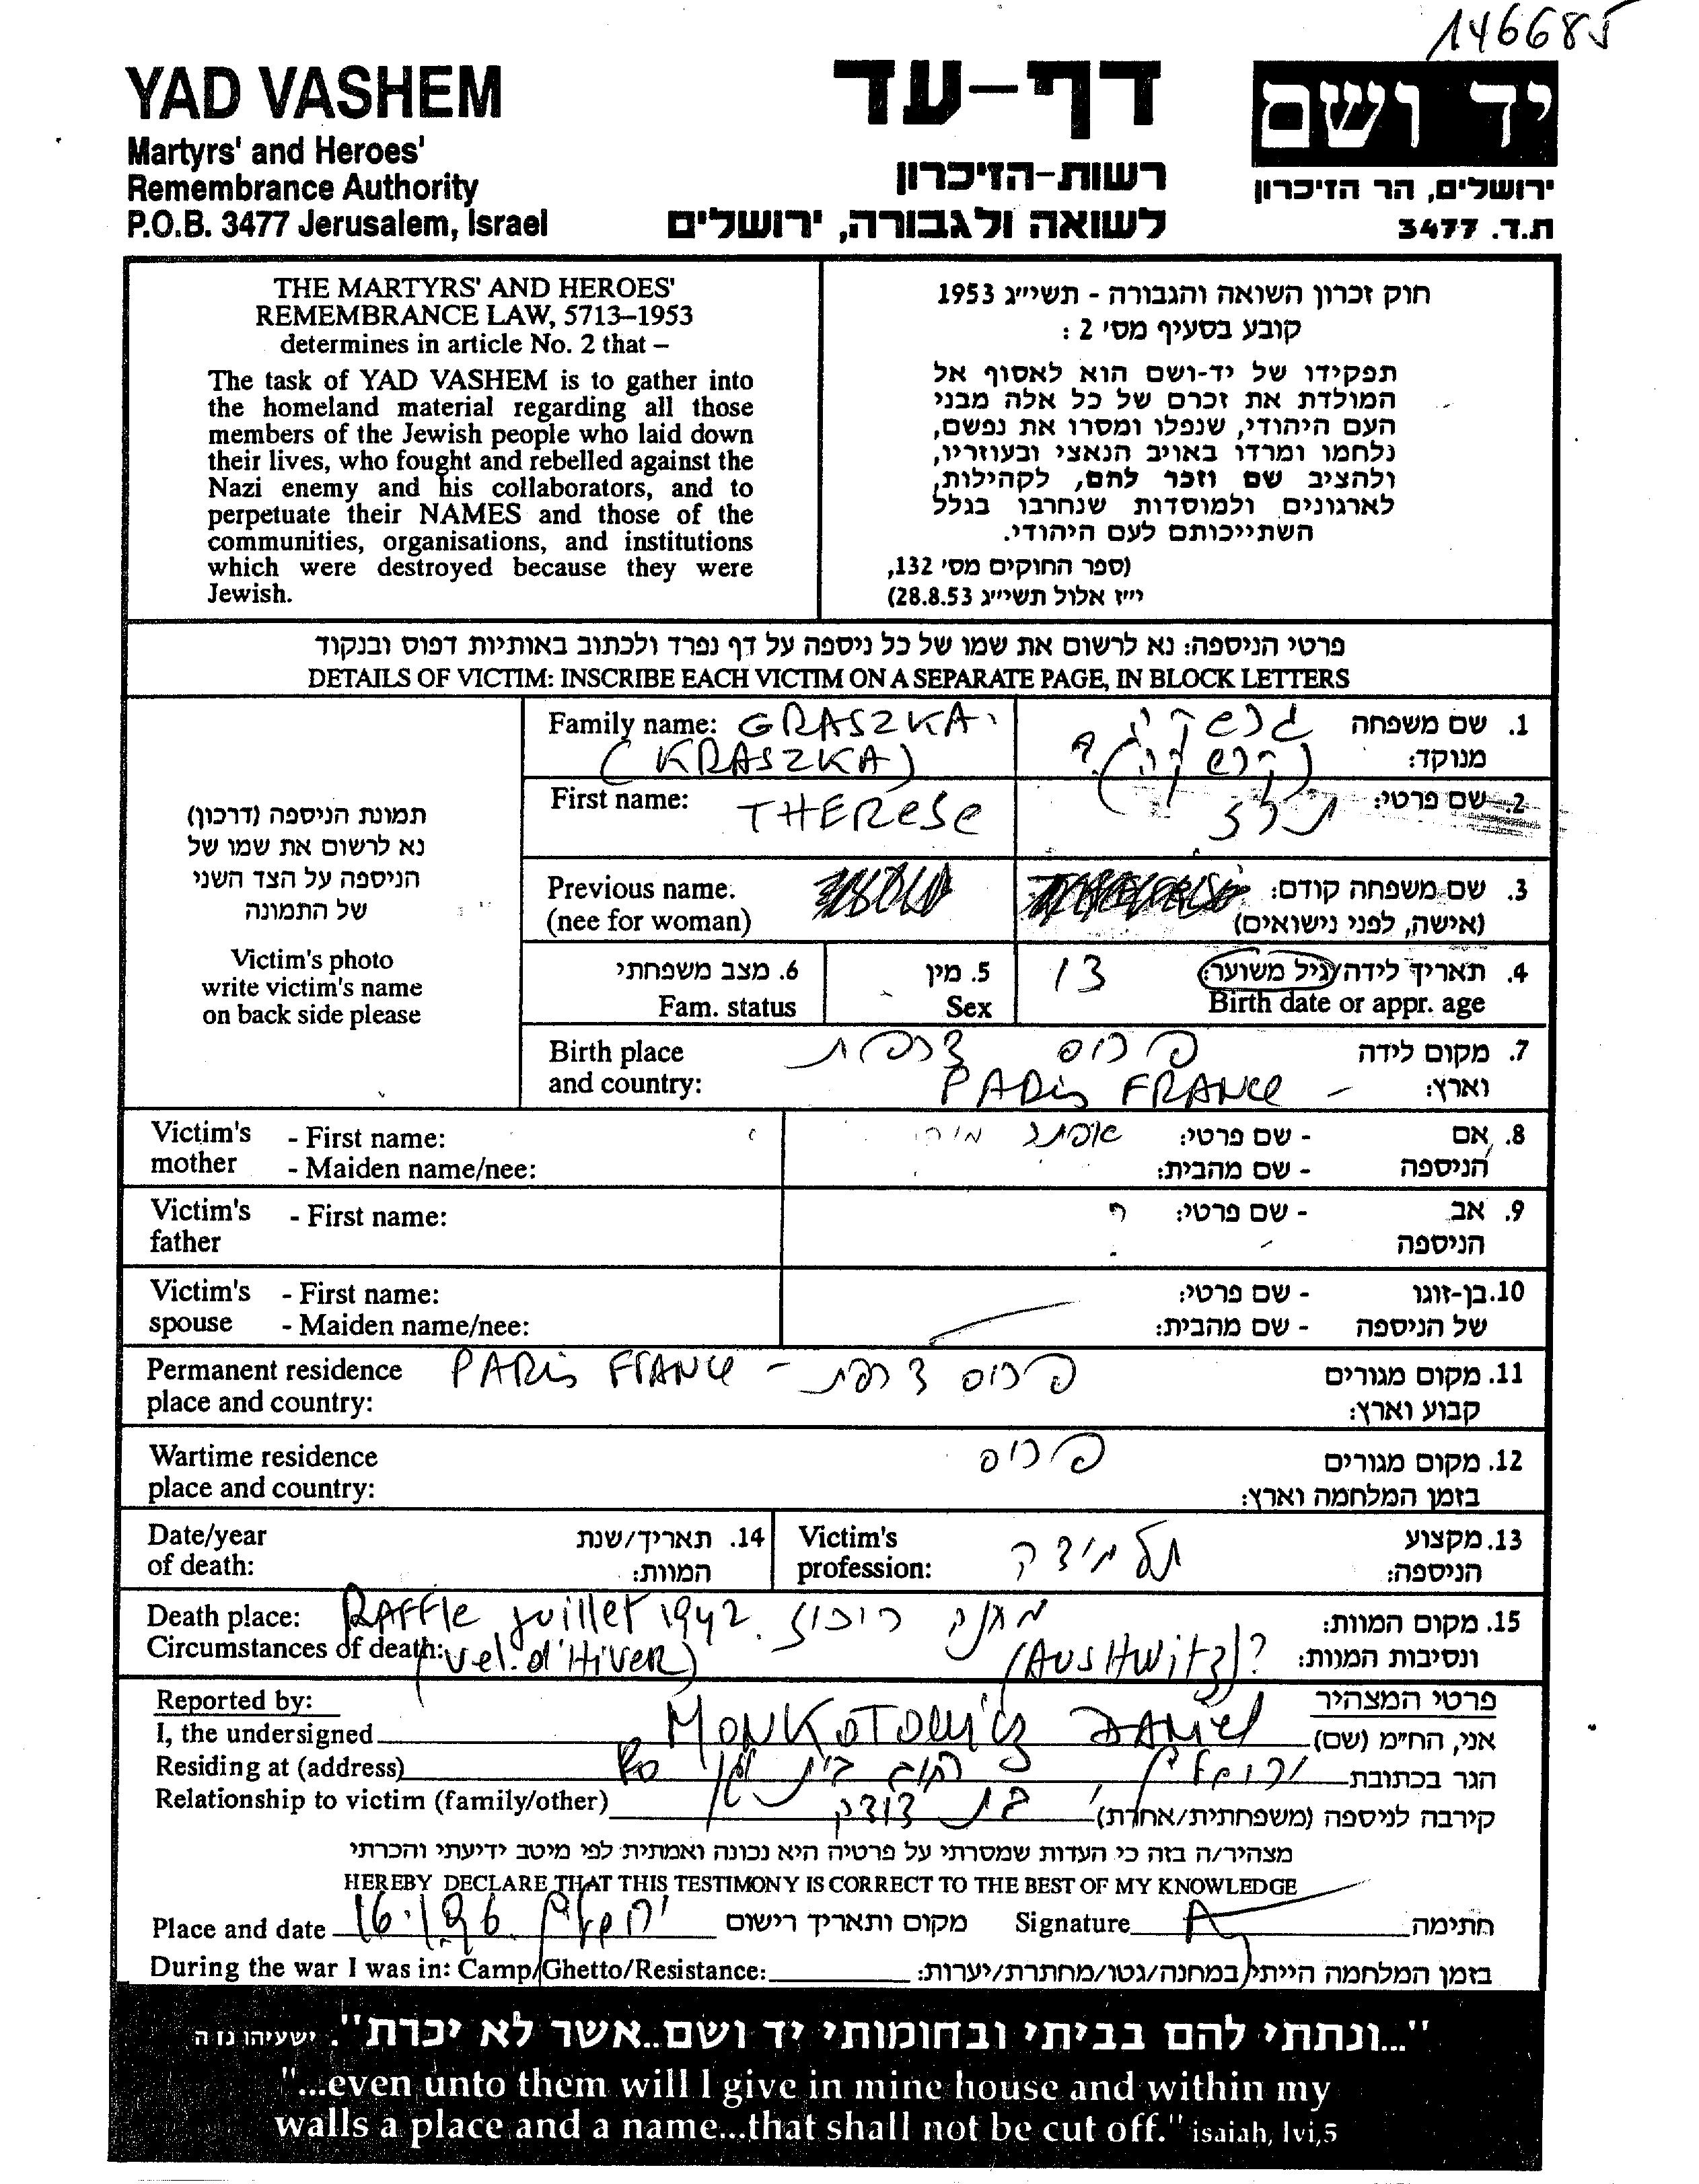 146685
YAD VASHEM
Martyrs' and Heroes'
Remembrance Authority
P.O.B. 3477 Jerusalem, Israel
דף-עד
רשות-הזיכרון
לשואה ולגבורה, ירושלים
יד ושם
ירושלים, הר הזיכרון
ת.ד. 3477
THE MARTYRS' AND HEROES'
REMEMBRANCE LAW, 5713–1953
determines in article No. 2 that –
The task of YAD VASHEM is to gather into
the homeland material regarding all those
members of the Jewish people who laid down
their lives, who fought and rebelled against the
Nazi enemy and his collaborators, and to
perpetuate their NAMES and those of the
communities, organisations, and institutions
which were destroyed because they were
Jewish.
חוק זכרון השואה והגבורה - תשי״ג 1953
קובע בסעיף מס׳ 2 :
תפקידו של יד-ושם הוא לאסוף אל
המולדת את זכרם של כל אלה מבני
העם היהודי, שנפלו ומסרו את נפשם,
נלחמו ומרדו באויב הנאצי ובעוזריו,
ולהציב שם וזכר להם, לקהילות,
לארגונים ולמוסדות שנחרבו בגלל
השתייכותם לעם היהודי.
(ספר החוקים מס׳ 132,
י״ז אלול תשי״ג 28.8.53)
פרטי הניספה: נא לרשום את שמו של כל ניספה על דף נפרד ולכתוב באותיות דפוס ובנקוד
DETAILS OF VICTIM: INSCRIBE EACH VICTIM ON A SEPARATE PAGE, IN BLOCK LETTERS
תמונת הניספה (דרכון)
נא לרשום את שמו של
הניספה על הצד השני
של התמונה
Victim's photo
write victim's name
on back side please
Family name: GRASZKA
(KRASZKA)
1. שם משפחה גרשקה
מנוקד: (קרשקה)?
First name: THERESE
2. שם פרטי: תרז
Previous name.
(nee for woman)
3. שם משפחה קודם:
(אישה, לפני נישואים)
6. מצב משפחתי
Fam. status
5. מין
Sex
4. תאריך לידה/גיל משוער: 13
Birth date or appr. age
Birth place
and country:
7. מקום לידה פריס צרפת
וארץ: PARIS FRANCE -
Victim's mother - First name:
- Maiden name/nee:
8. אם הניספה - שם פרטי:
- שם מהבית:
Victim's father - First name:
9. אב הניספה - שם פרטי: ?
Victim's spouse - First name:
- Maiden name/nee:
10. בן-זוגו של הניספה - שם פרטי:
- שם מהבית:
Permanent residence
place and country:
PARIS FRANCE - פריס צרפת
11. מקום מגורים
קבוע וארץ:
Wartime residence
place and country:
פריס
12. מקום מגורים
בזמן המלחמה וארץ:
Date/year
of death:
14. תאריך/שנת
המוות:
Victim's
profession:
תלמידה
13. מקצוע
הניספה:
Death place:
Circumstances of death:
RAFFLE juillet 1942. מחנה ריכוז
(Vel. d'HiVER) (AUSHWitz)?
15. מקום המוות:
ונסיבות המוות:
Reported by:
פרטי המצהיר
I, the undersigned MONKOTOWICZ DANIEL אני, הח״מ (שם)
Residing at (address) הגר בכתובת ירושלים
Relationship to victim (family/other) קירבה לניספה (משפחתית/אחרת) בת דודה
מצהיר/ה בזה כי העדות שמסרתי על פרטיה היא נכונה ואמתית לפי מיטב ידיעתי והכרתי
HEREBY DECLARE THAT THIS TESTIMONY IS CORRECT TO THE BEST OF MY KNOWLEDGE
Place and date 16.1.96 ירושלים מקום ותאריך רישום Signature חתימה
During the war I was in: Camp/Ghetto/Resistance: בזמן המלחמה הייתי במחנה/גטו/מחתרת/יערות:
"...ונתתי להם בביתי ובחומותי יד ושם..אשר לא יכרת". ישעיהו נו ה
"...even unto them will I give in mine house and within my
walls a place and a name...that shall not be cut off." isaiah, lvi,5